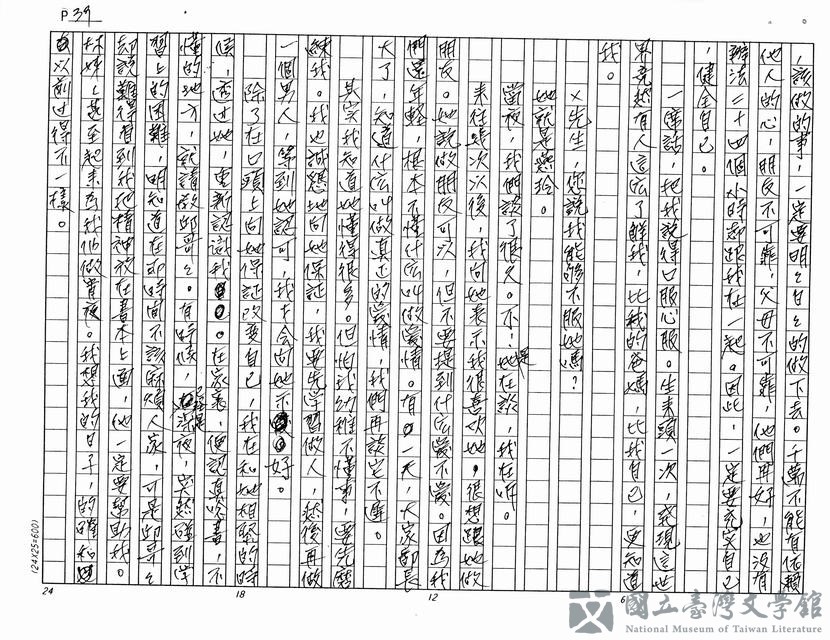 P39
，該做的事，一定要明明白白的做下去。千萬不能有依賴
他人的心，朋友不可靠，父母不可靠，他們再好，也沒有
辦法二十四個小時都跟我在一起。因此，一定要充實自己
，健全自己。
一席話，把我說得口服心服。生來頭一次，發現這世
界竟然有人這麼了解我，比我的爸媽，比我自己，更知道
我。
X先生，您說我能夠不服她嗎？
她就是
當夜，我們談了很久。不，是她在談，我在听。
來往幾次以後，我向她表示我很喜欢她。很想跟她做
朋友。她說做朋友可以，但不要提到什麼愛不愛。因為我
們還年輕，根本不懂什麼叫做愛情。有一天，大家都長
大了，知道什麼叫做真正的愛情，我們再談它不遲。
其实我知道她懂得很多。但怕我幼稚不懂事，要先磨
練我。我也誠懇地向她保証，我要先学習做人，然後再做
一個男人，等到她認可，我才會向她示好。
除了在口頭上向她保証改變自己，我在和她相聚的時
候，透过她，重新認識我。在家裏，便認真唸書，不
懂的地方，就請教邱哥哥。有時候，深夜，突然碰到学
習上的困難，明知道在那時間不該麻煩人家，可是邱哥哥
却說難得看到我把精神放在書本上面，他一定要幫助我。
林姊姊甚至起來為我們做宵夜。我想我的日子，的確和
以前过得不一樣。
24
18
12
6
(24X25=600)
國立臺灣文學館
National Museum of Taiwan Literature